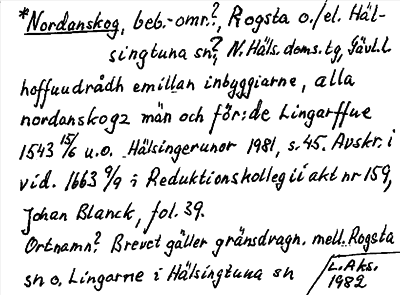 *Nordanskog, beb.-omr.?, Rogsta o./el. Häl-
singtuna sn?, N. Häls. doms.tg, Gävl.l.
hoffuudrådh emillan inbyggiarne, alla
nordanskogz män och för:de Lingarffue
1543 15/6 u.o. Hälsingerunor 1981, s.45. Avskr. i
vid. 1663 9/9 i Reduktionskollegii akt nr 159,
Johan Blanck, fol. 39.
Ortnamn? Brevet gäller gränsdragn. mell. Rogsta
sn o. Lingarne i Hälsingtuna sn
L. Aks.
1982